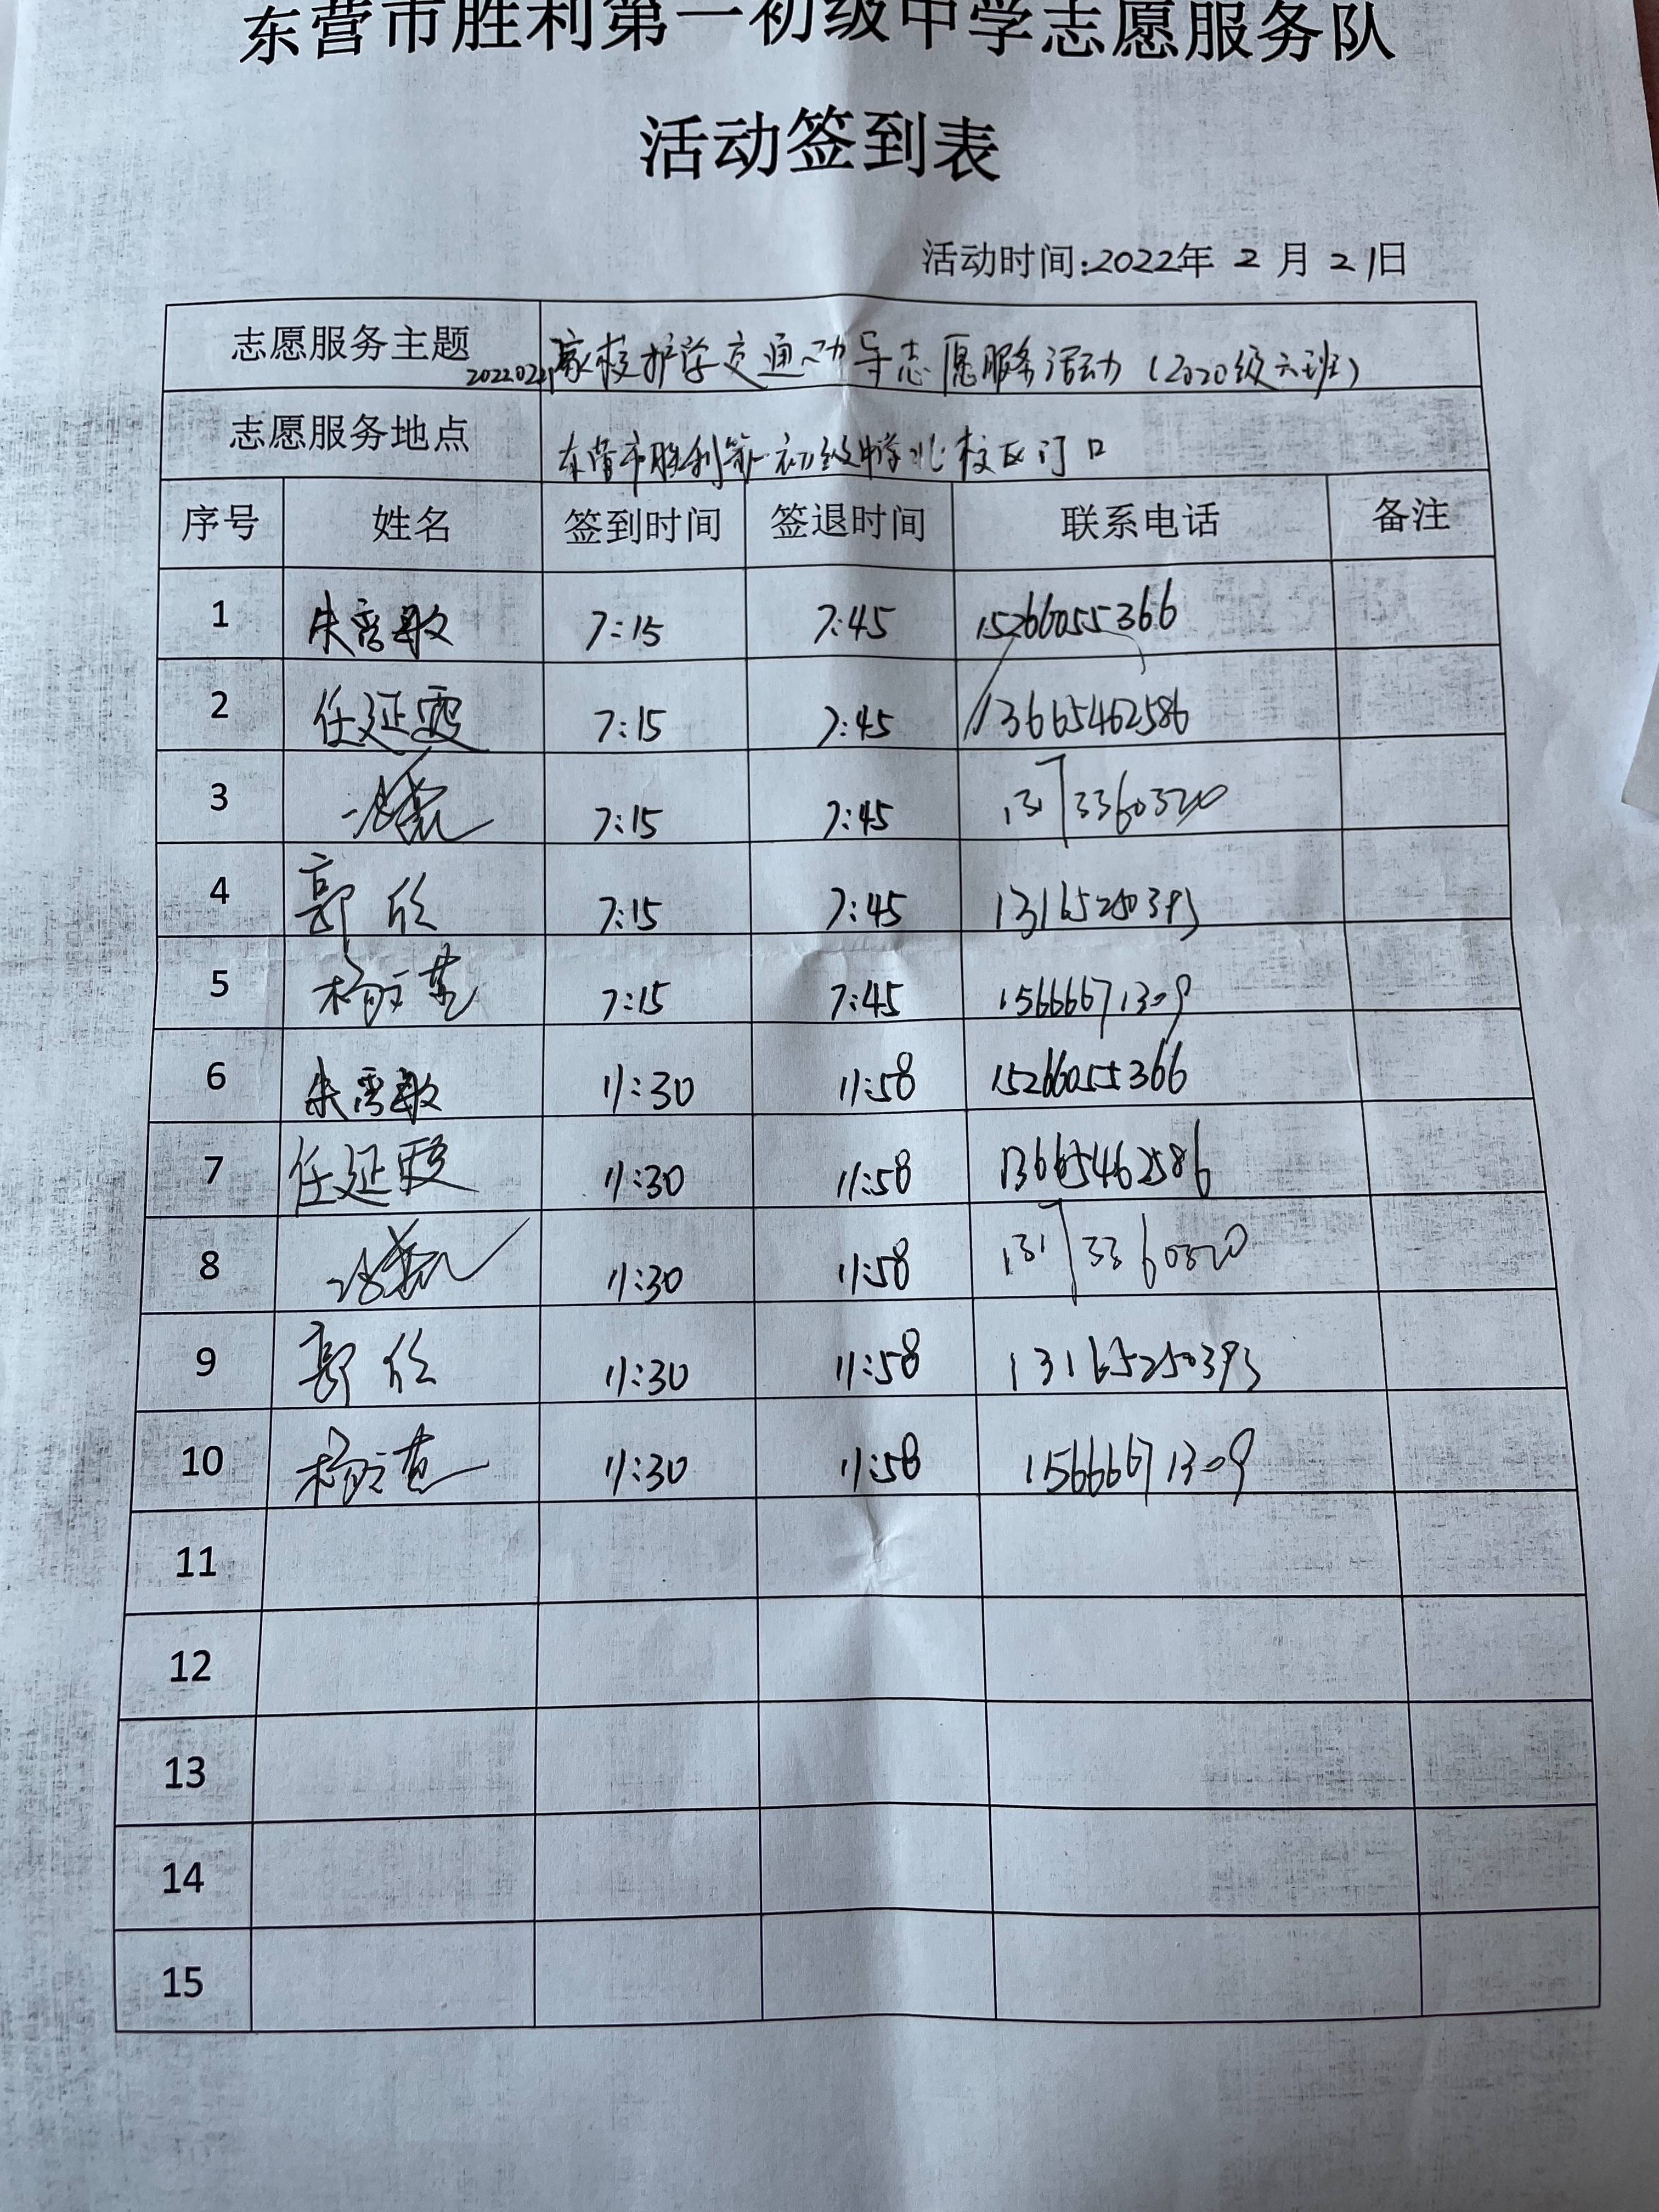 东营市胜利第一初级中学志愿服务队
活动签到表
活动时间:2022年 2 月 21日
志愿服务主题 20220221家校护学交通劝导志愿服务活动（2020级六班）
志愿服务地点 东营市胜利第一初级中学北校区门口
序号 姓名 签到时间 签退时间 联系电话 备注
1 朱 敏 7:15 7:45 15266055366
2 任延霞 7:15 7:45 13665462586
3 7:15 7:45 13173360320
4 郭欣 7:15 7:45 13165250393
5 杨文 7:15 7:45 15666671309
6 朱 敏 11:30 11:58 15266055366
7 任延霞 11:30 11:58 13665462586
8 11:30 11:58 13173360320
9 郭欣 11:30 11:58 13165250393
10 杨文 11:30 11:58 15666671309
11
12
13
14
15